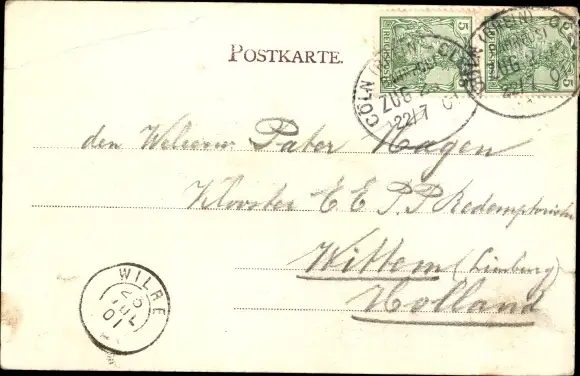 POSTKARTE.
5 REICHSPOST 5
CÖLN (RHEIN) CL
ZUG 2
22/7 01
den Weleerw Pater Hagen
Klooster E E. P. P Redemptoristen
Wittem (Limburg)
Holland
WILRE
JUL
01